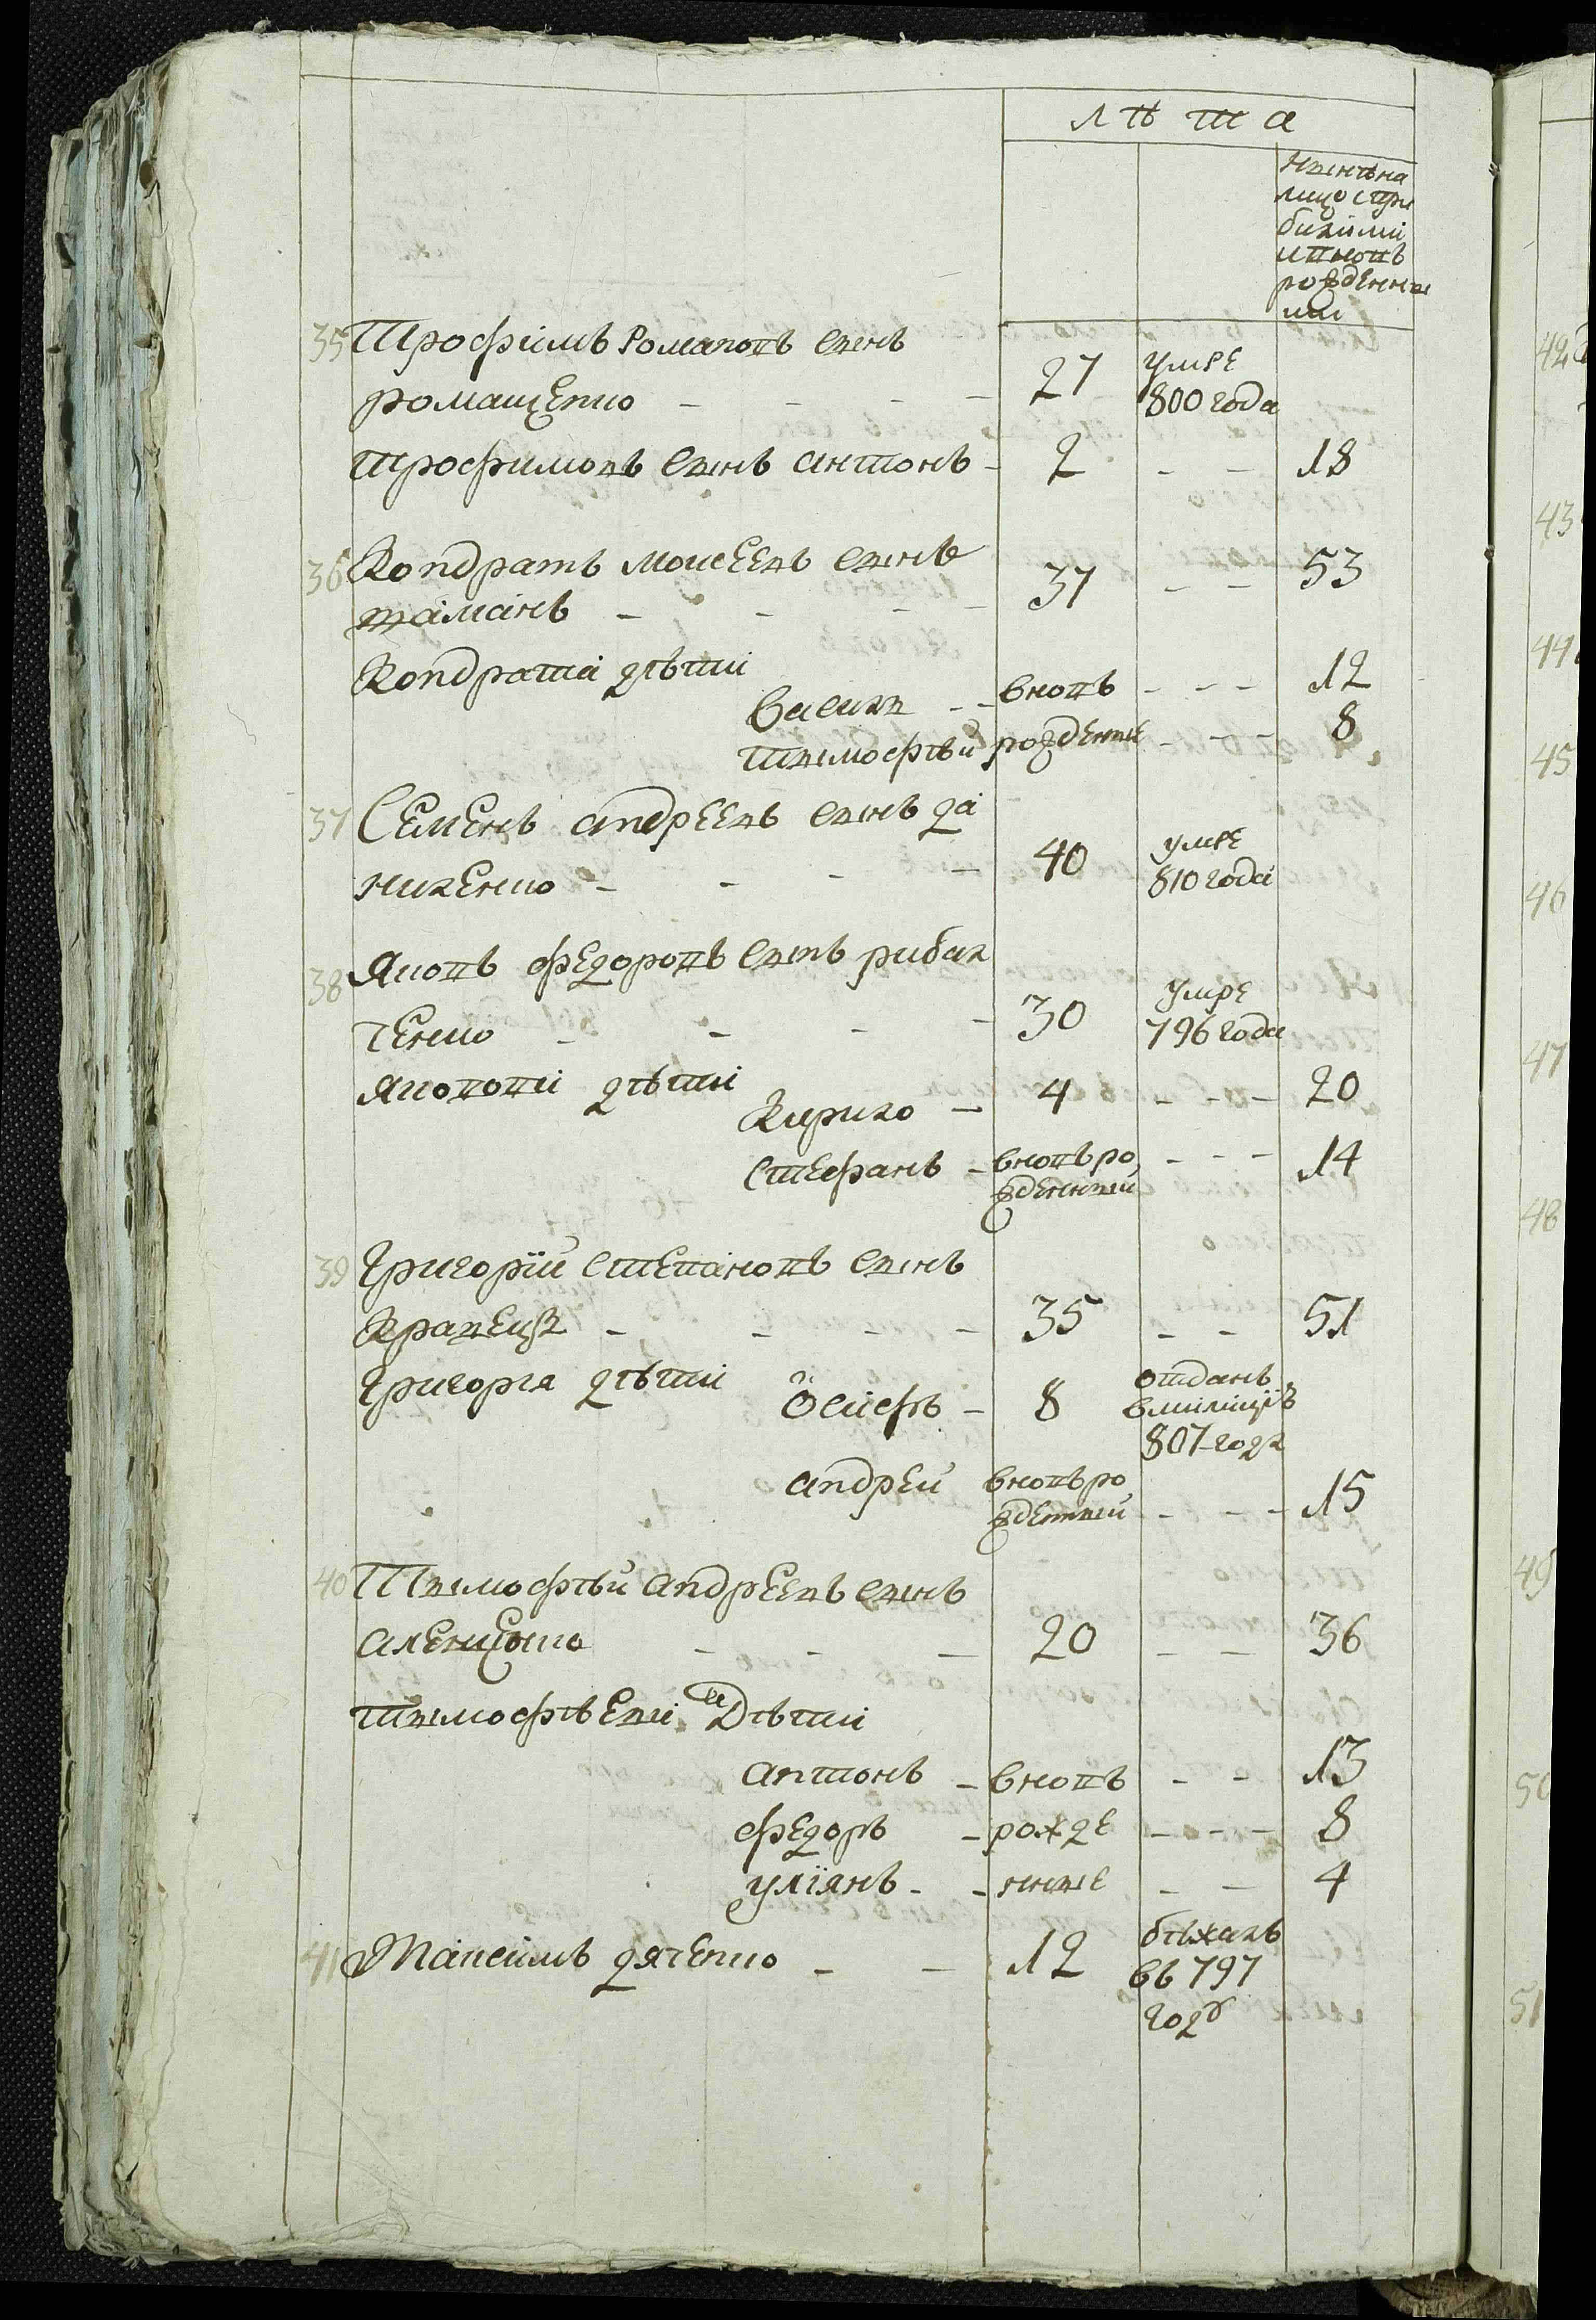 лѣта
Нынѣ на
лицо спри
билими
и вновь
рожденны
ми
35 Трофимъ Романовъ сынъ
Ромащенко - - - - 27 умре 800 года
Трофимовъ сынъ антонъ - 2 - - 18
36 Кондратъ Моисеевъ сынъ
таманъ - - - - 37 - - 53
Кондрата дѣти
Василь - - вновь - - - 12
Тымофѣй рожденные - - - 8
37 Семенъ андреевъ сынъ да
ниленко - - - - 40 умре 810 года
38 Яковъ федоровъ сынъ рибал
ченко - - - - 30 умре 796 года
Яковови дѣти
Кирило - 4 - - - 20
Стефанъ - вновь ро
жденный - - - 14
39 Григорій Степановъ сынъ
Кравецъ - - - - 35 - - 51
Григорія дѣти
Осифъ - 8 отданъ
в милицію
807 года
андрей вновь ро
жденный - - - 15
40 Тымофѣй андреевъ сынъ
Аленченко - - - 20 - - 36
тымофѣеви дѣти
антонъ - вновь - - 13
федоръ - рожде - - - 8
уліянъ - - нные - - 4
41 Максимъ дяченко - - 12 бѣжалъ
въ 797
году
42
43
44
45
46
47
48
49
50
51